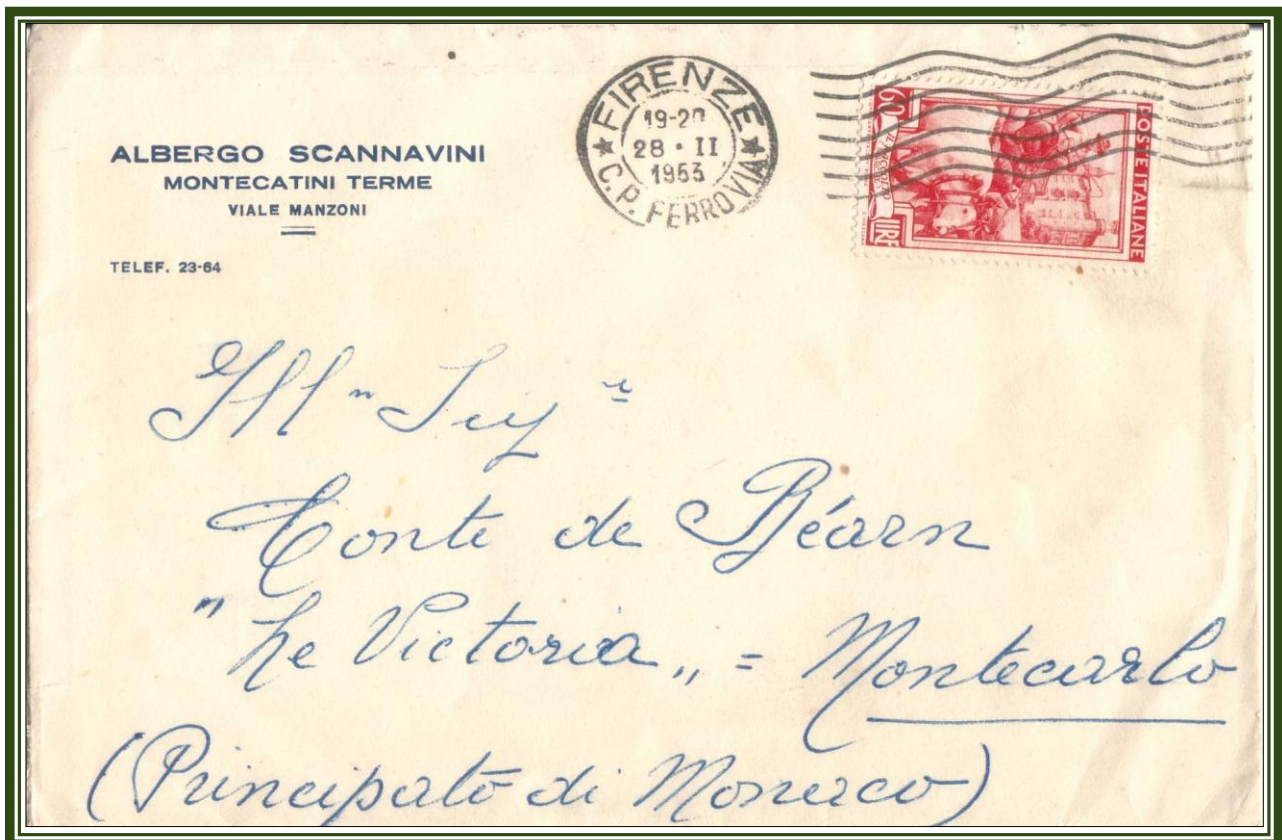 ALBERGO SCANNAVINI
MONTECATINI TERME
VIALE MANZONI
TELEF. 23-64
FIRENZE
19-20
28 • II
1953
C.P. FERROVIA
POSTE ITALIANE
60
LIRE
Ill
Conte de Béarn
"Le Victoria„ = Montecarlo
(Principato di Monaco)